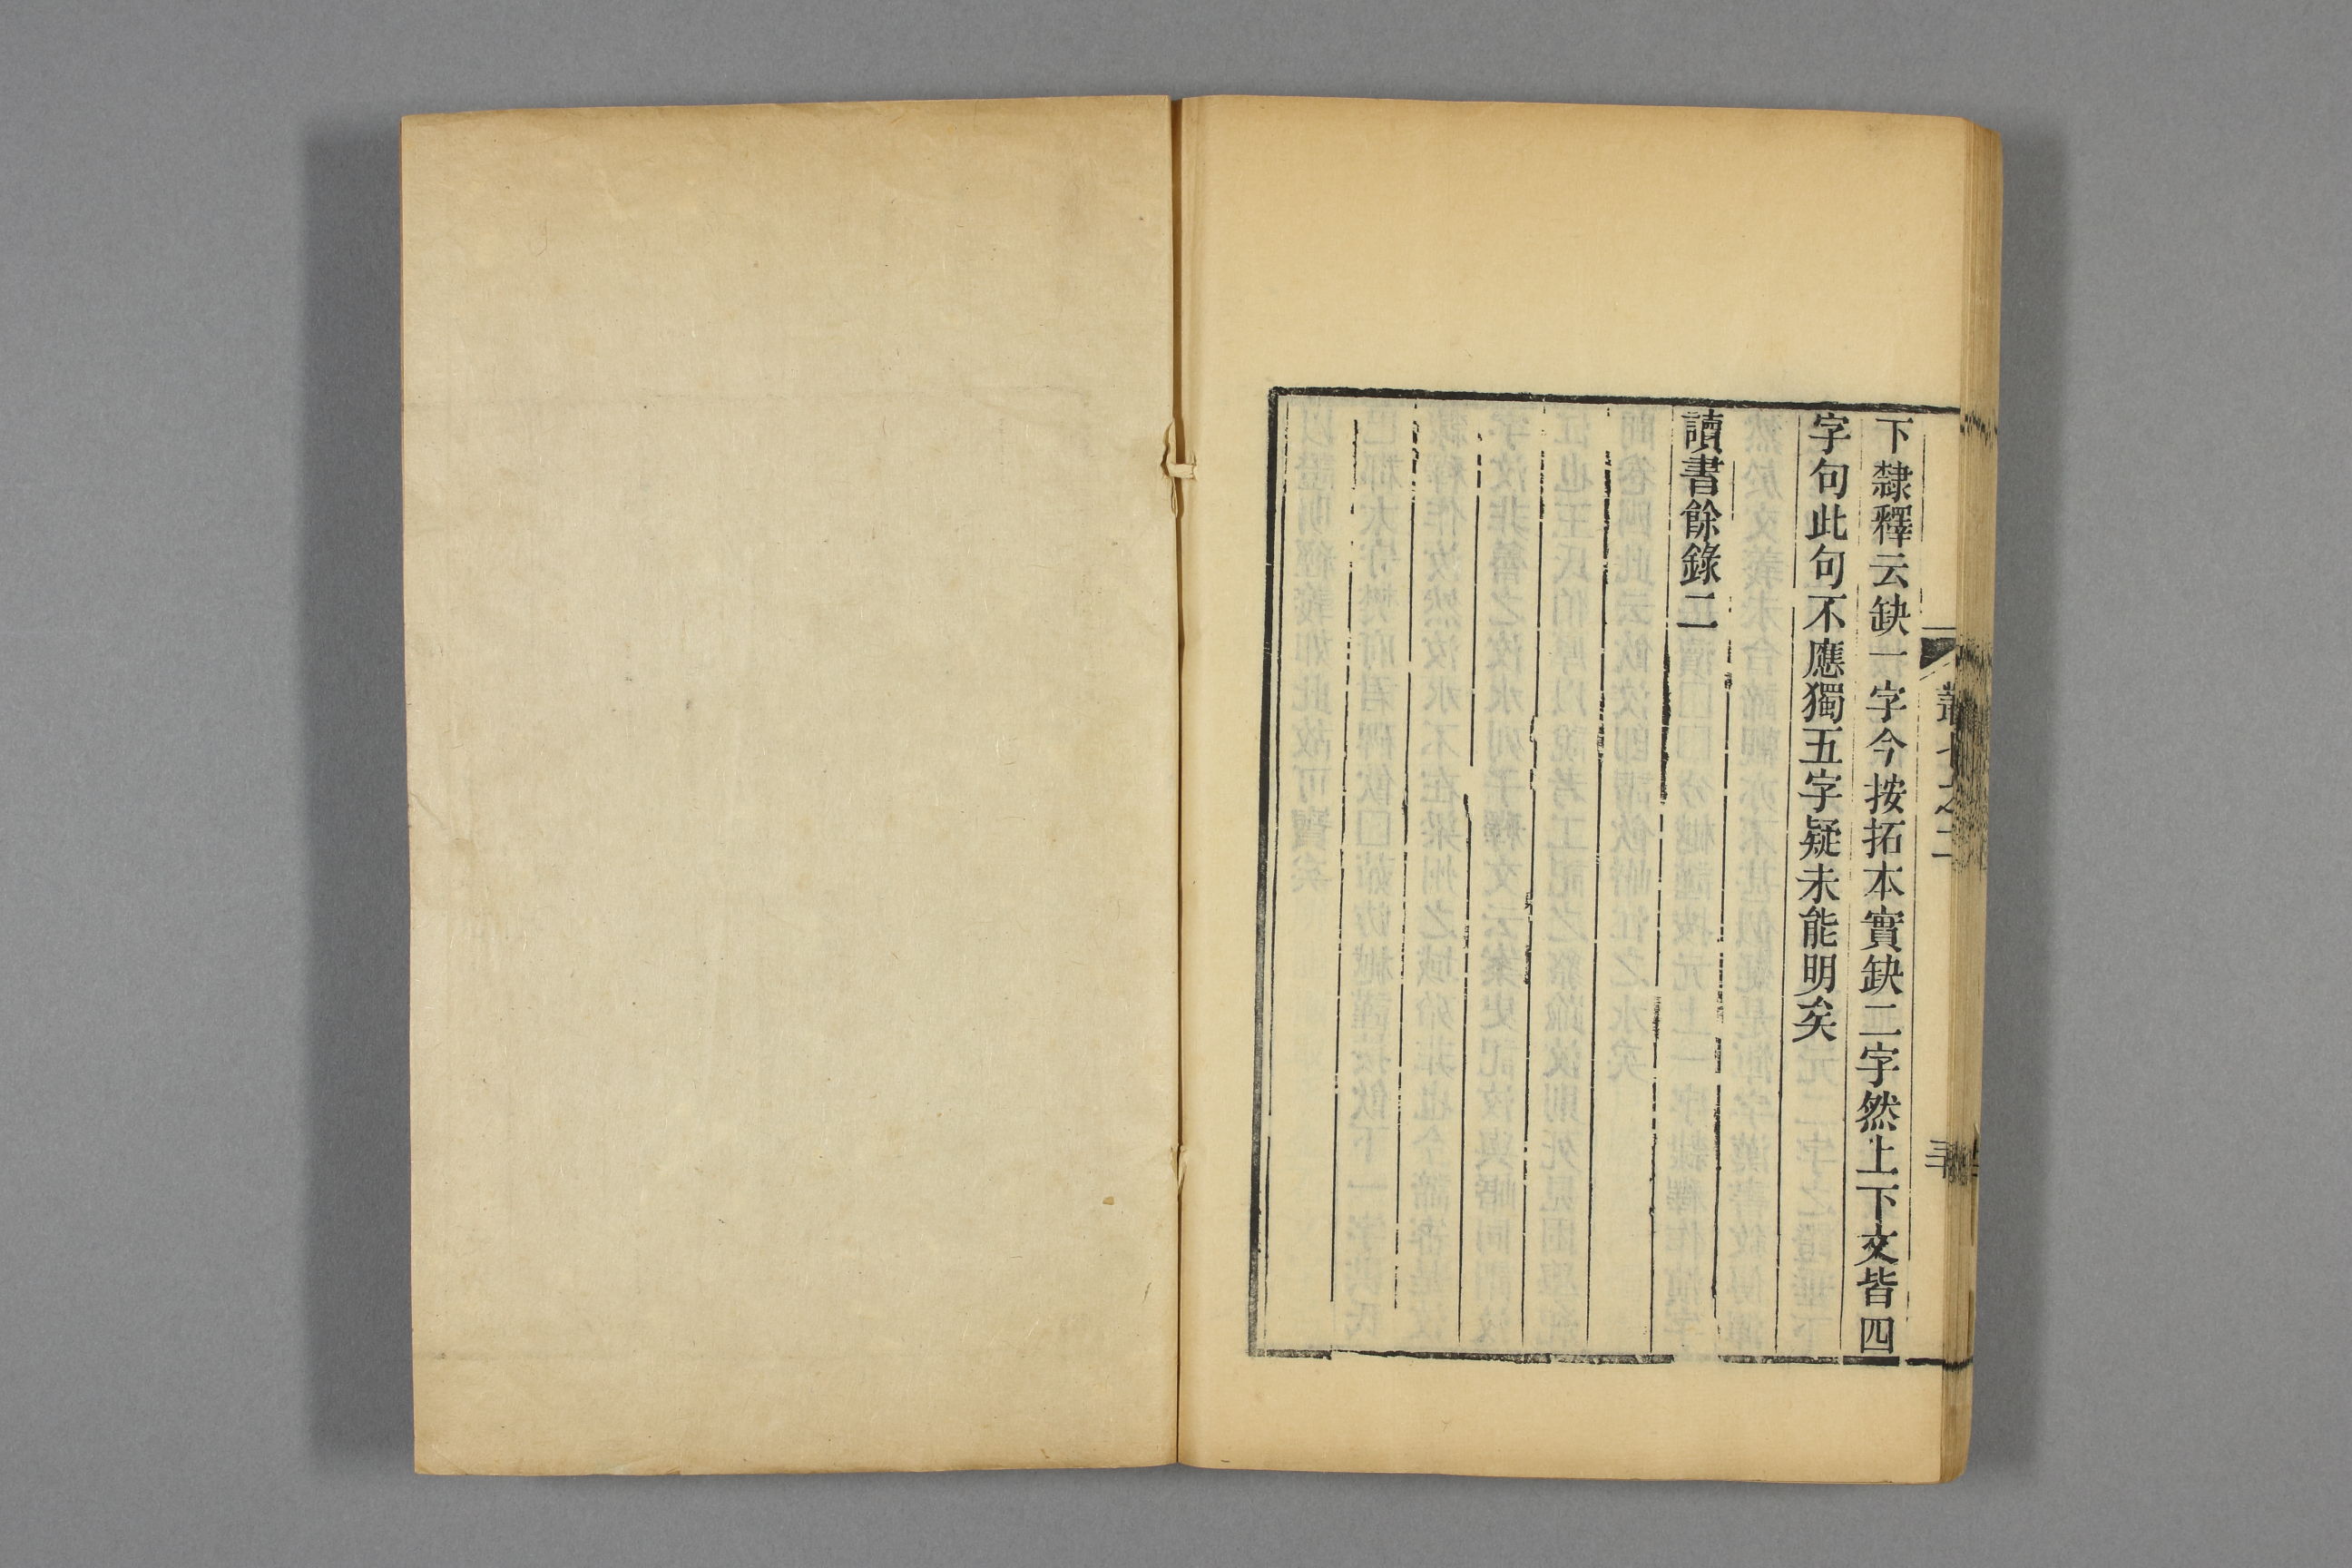 下隸釋云缺一字今按拓本實缺二字然上下文皆四
字句此句不應獨五字疑未能明矣
讀書餘錄二